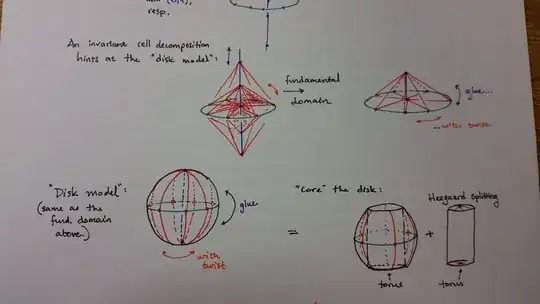 resp.
An invariant cell decomposition
hints at the "disk model":
fundamental
domain
glue...
...with twist
"Disk model":
(same as the
fund. domain
above.)
glue
with
twist
"Core" the disk:
=
+
Heegaard Splitting
torus
torus